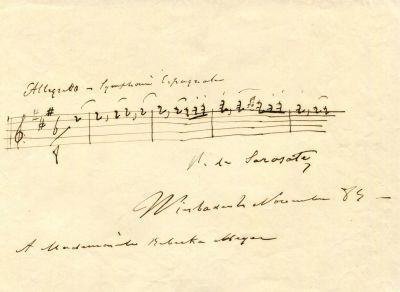 Allegretto – Symphonie Espagnole
P. de Sarasate
Wiesbaden Novembre 85 –
A Mademoiselle Rebecka Meyer